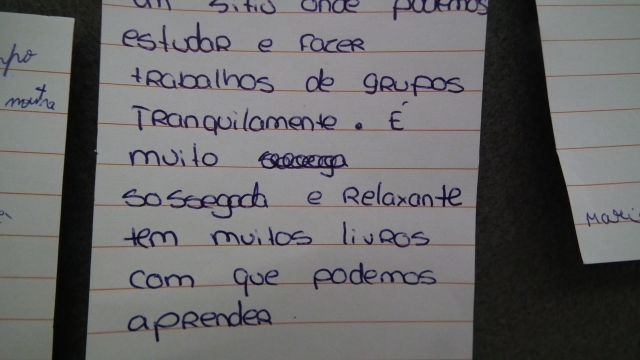 um sitio onde podemos
estudar e facer
trabalhos de grupos
Tranquilamente. É
muito
sossegada e Relaxante
tem muitos livros
com que podemos
aprender.
mpo
Mari